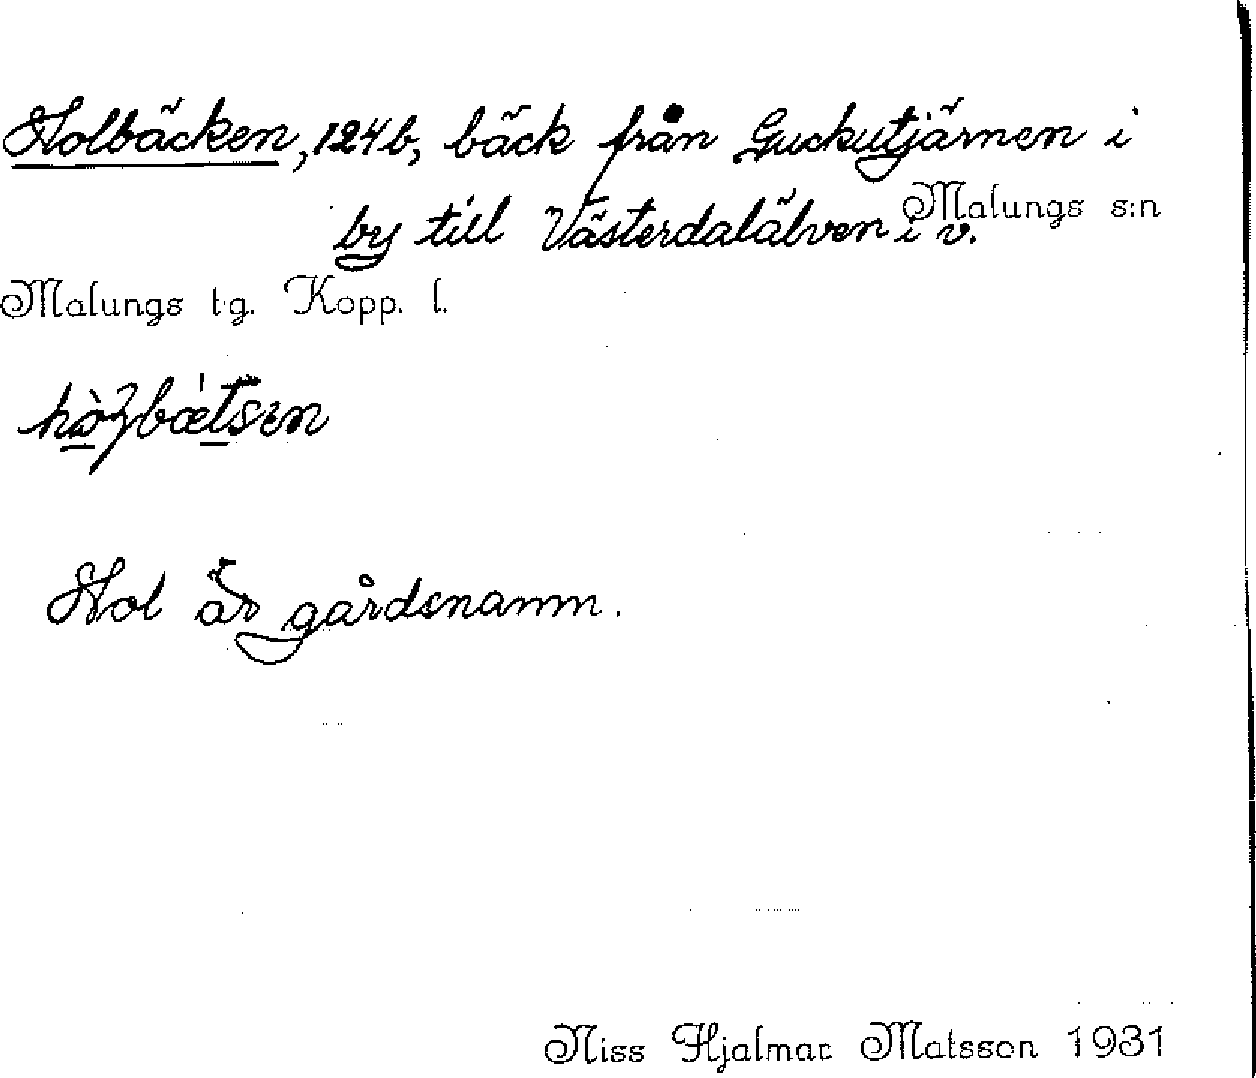 Holbäcken, 124b, bäck från Guckutjärnen i
by till Västerdalälven i v. Malungs s:n
Malungs tg. Kopp. l.
Hol är gårdsnamn.
Niss Hjalmar Matsson 1931